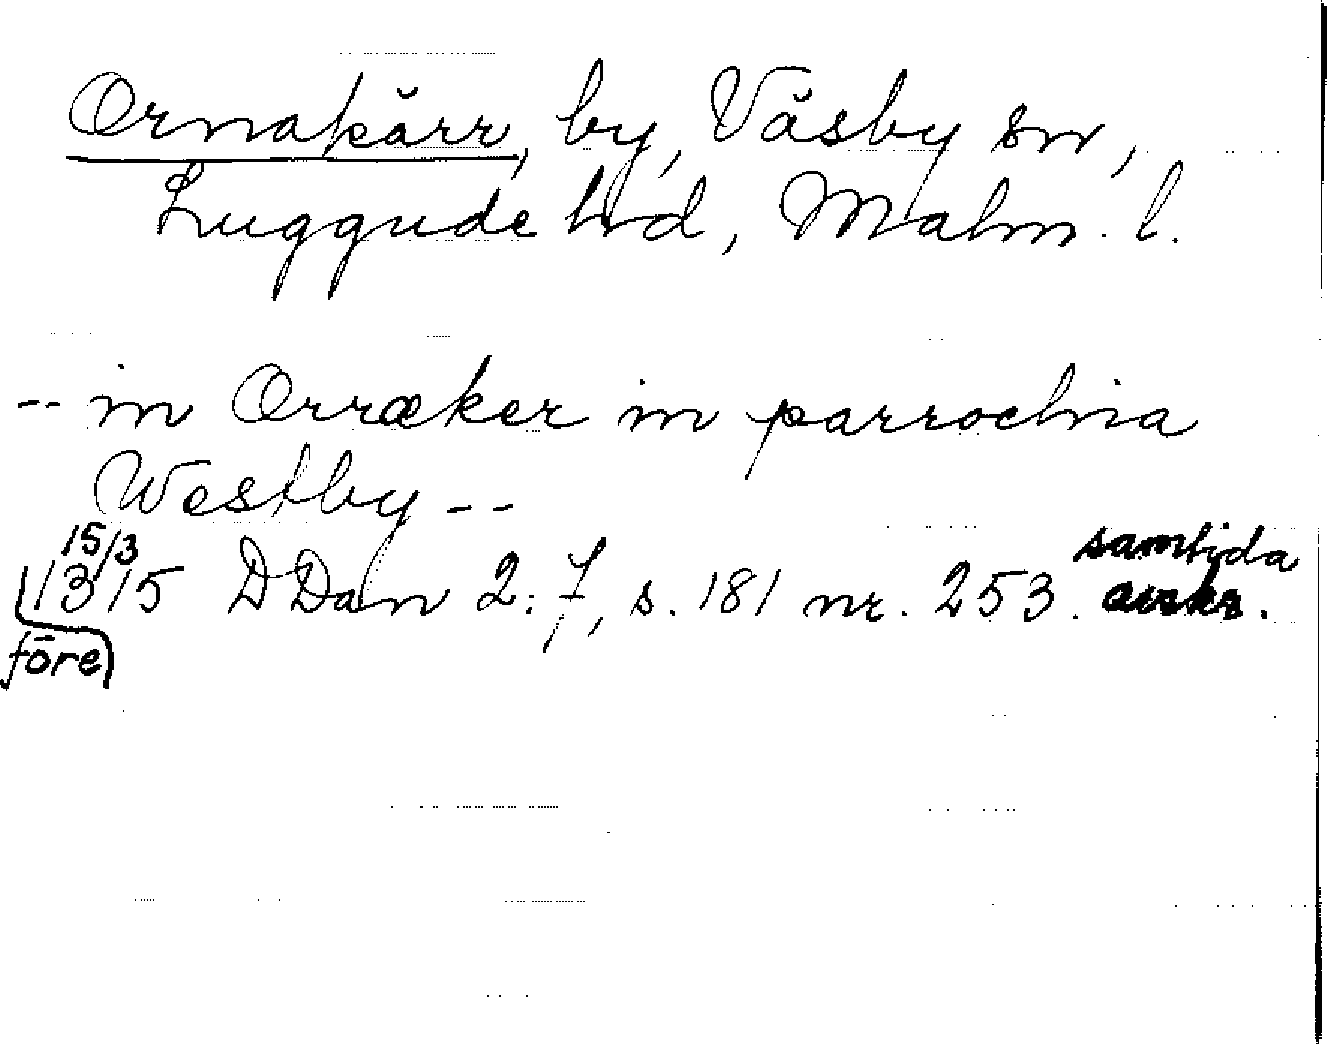 Ornakärr, by, Väsby sn,
Luggude hd, Malm. l.
-- in Orræker in parrochia
Westby --
15/3
1315 DDan 2:7, s. 181 nr. 253. samtida
avskr.
före